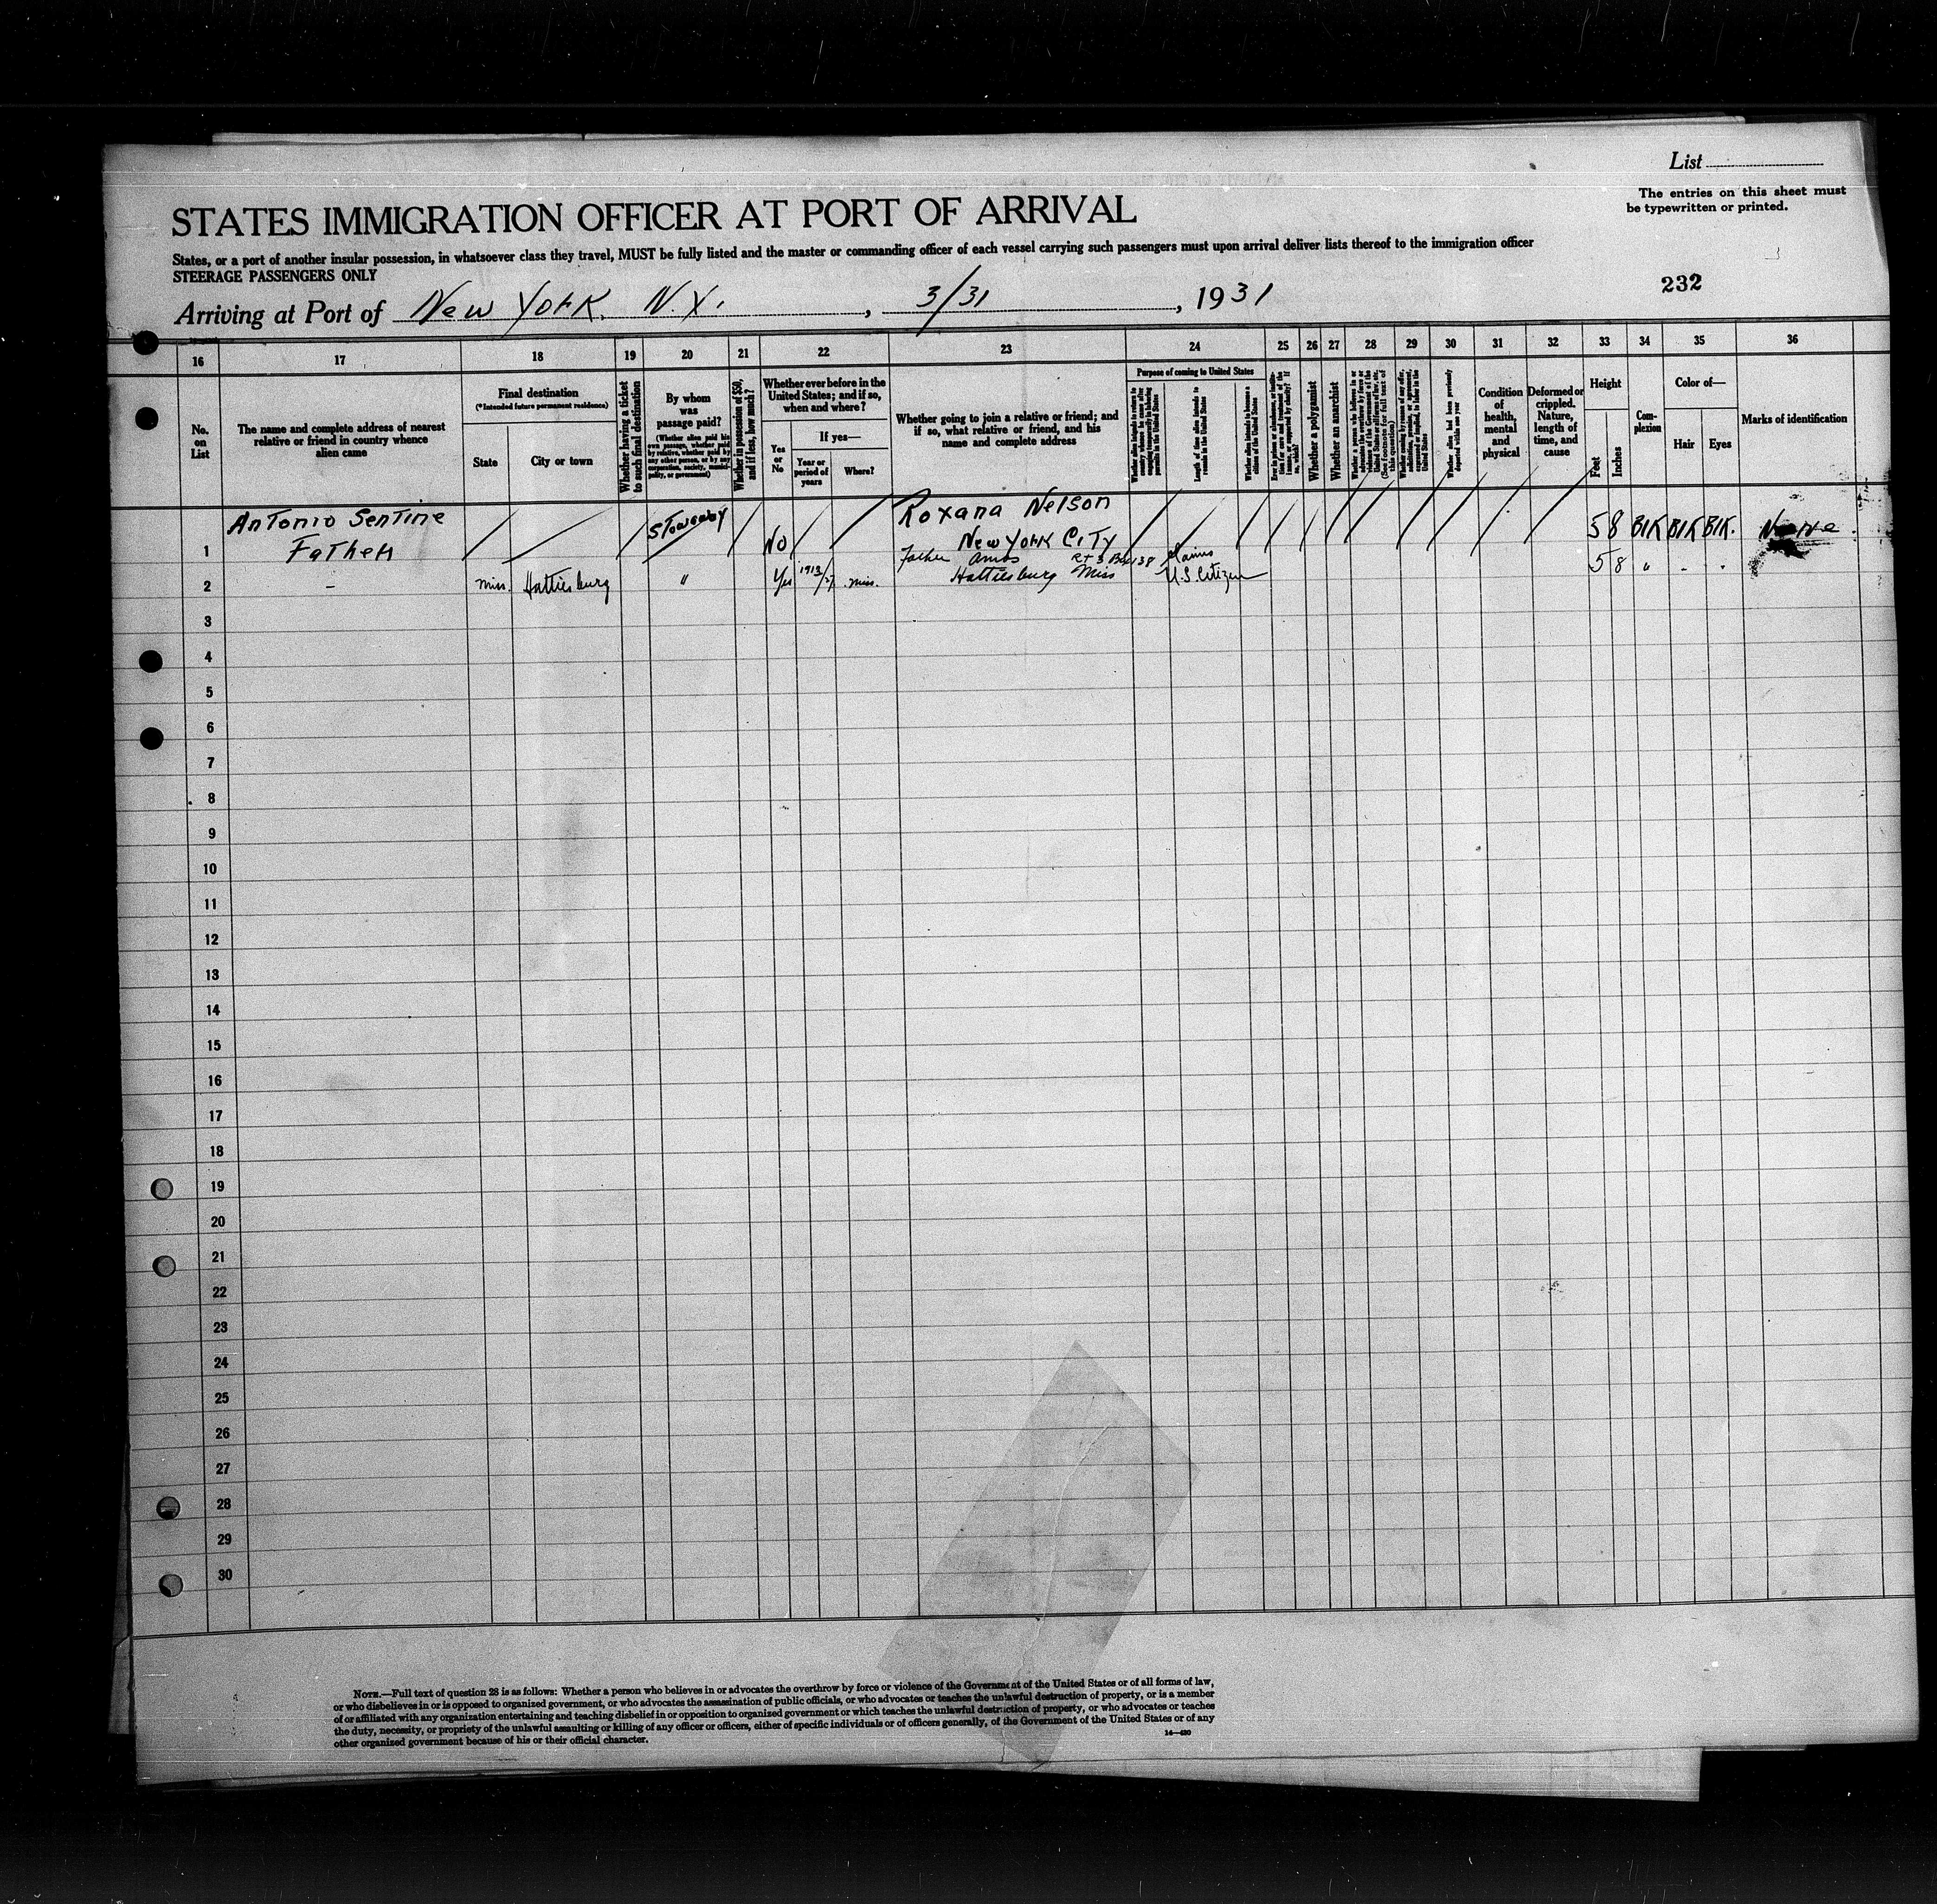 List
The entries on this sheet must
be typewritten or printed.
STATES IMMIGRATION OFFICER AT PORT OF ARRIVAL
States, or a port of another insular possession, in whatsoever class they travel, MUST be fully listed and the master or commanding officer of each vessel carrying such passengers must upon arrival deliver lists thereof to the immigration officer
STEERAGE PASSENGERS ONLY
232
Arriving at Port of New York. N.Y. , 3/31 , 1931
16 17 18 19 20 21 22 23 24 25 26 27 28 29 30 31 32 33 34 35 36
No.
on
List
The name and complete address of nearest
relative or friend in country whence
alien came
Final destination
(*Intended future permanent residence)
State
City or town
Whether having a ticket
to such final destination
By whom
was
passage paid?
(Whether alien paid his
own passage, whether paid
by relative, whether paid by
any other person, or by any
corporation, society, munici-
pality, or government)
Whether in possession of $50,
and if less, how much?
Whether ever before in the
United States; and if so,
when and where?
Yes
or
No
If yes—
Year or
period of
years
Where?
Whether going to join a relative or friend; and
if so, what relative or friend, and his
name and complete address
Purpose of coming to United States
Length of time alien intends to
remain in the United States
Whether alien intends to become a
citizen of the United States
Whether a polygamist
Whether an anarchist
Whether alien had been previously
deported within one year
Condition
of
health,
mental
and
physical
Deformed or
crippled.
Nature,
length of
time, and
cause
Height
Feet
Inches
Com-
plexion
Color of—
Hair
Eyes
Marks of identification
Antonio Sentine Roxana Nelson
1 Father Stowaway No New York City 5 8 Blk Blk Blk. None
Father Amos Rt 3 Box 138
2 – Miss. Hattiesburg " Yes 1913/27 Miss. Hattiesburg Miss U.S. Citizen 5 8 " " "
3
4
5
6
7
8
9
10
11
12
13
14
15
16
17
18
19
20
21
22
23
24
25
26
27
28
29
30
NOTE.—Full text of question 28 is as follows: Whether a person who believes in or advocates the overthrow by force or violence of the Government of the United States or of all forms of law,
or who disbelieves in or is opposed to organized government, or who advocates the assassination of public officials, or who advocates or teaches the unlawful destruction of property, or is a member
of or affiliated with any organization entertaining and teaching disbelief in or opposition to organized government or which teaches the unlawful destruction of property, or who advocates or teaches
the duty, necessity, or propriety of the unlawful assaulting or killing of any officer or officers, either of specific individuals or of officers generally, of the Government of the United States or of any
other organized government because of his or their official character.
14—430